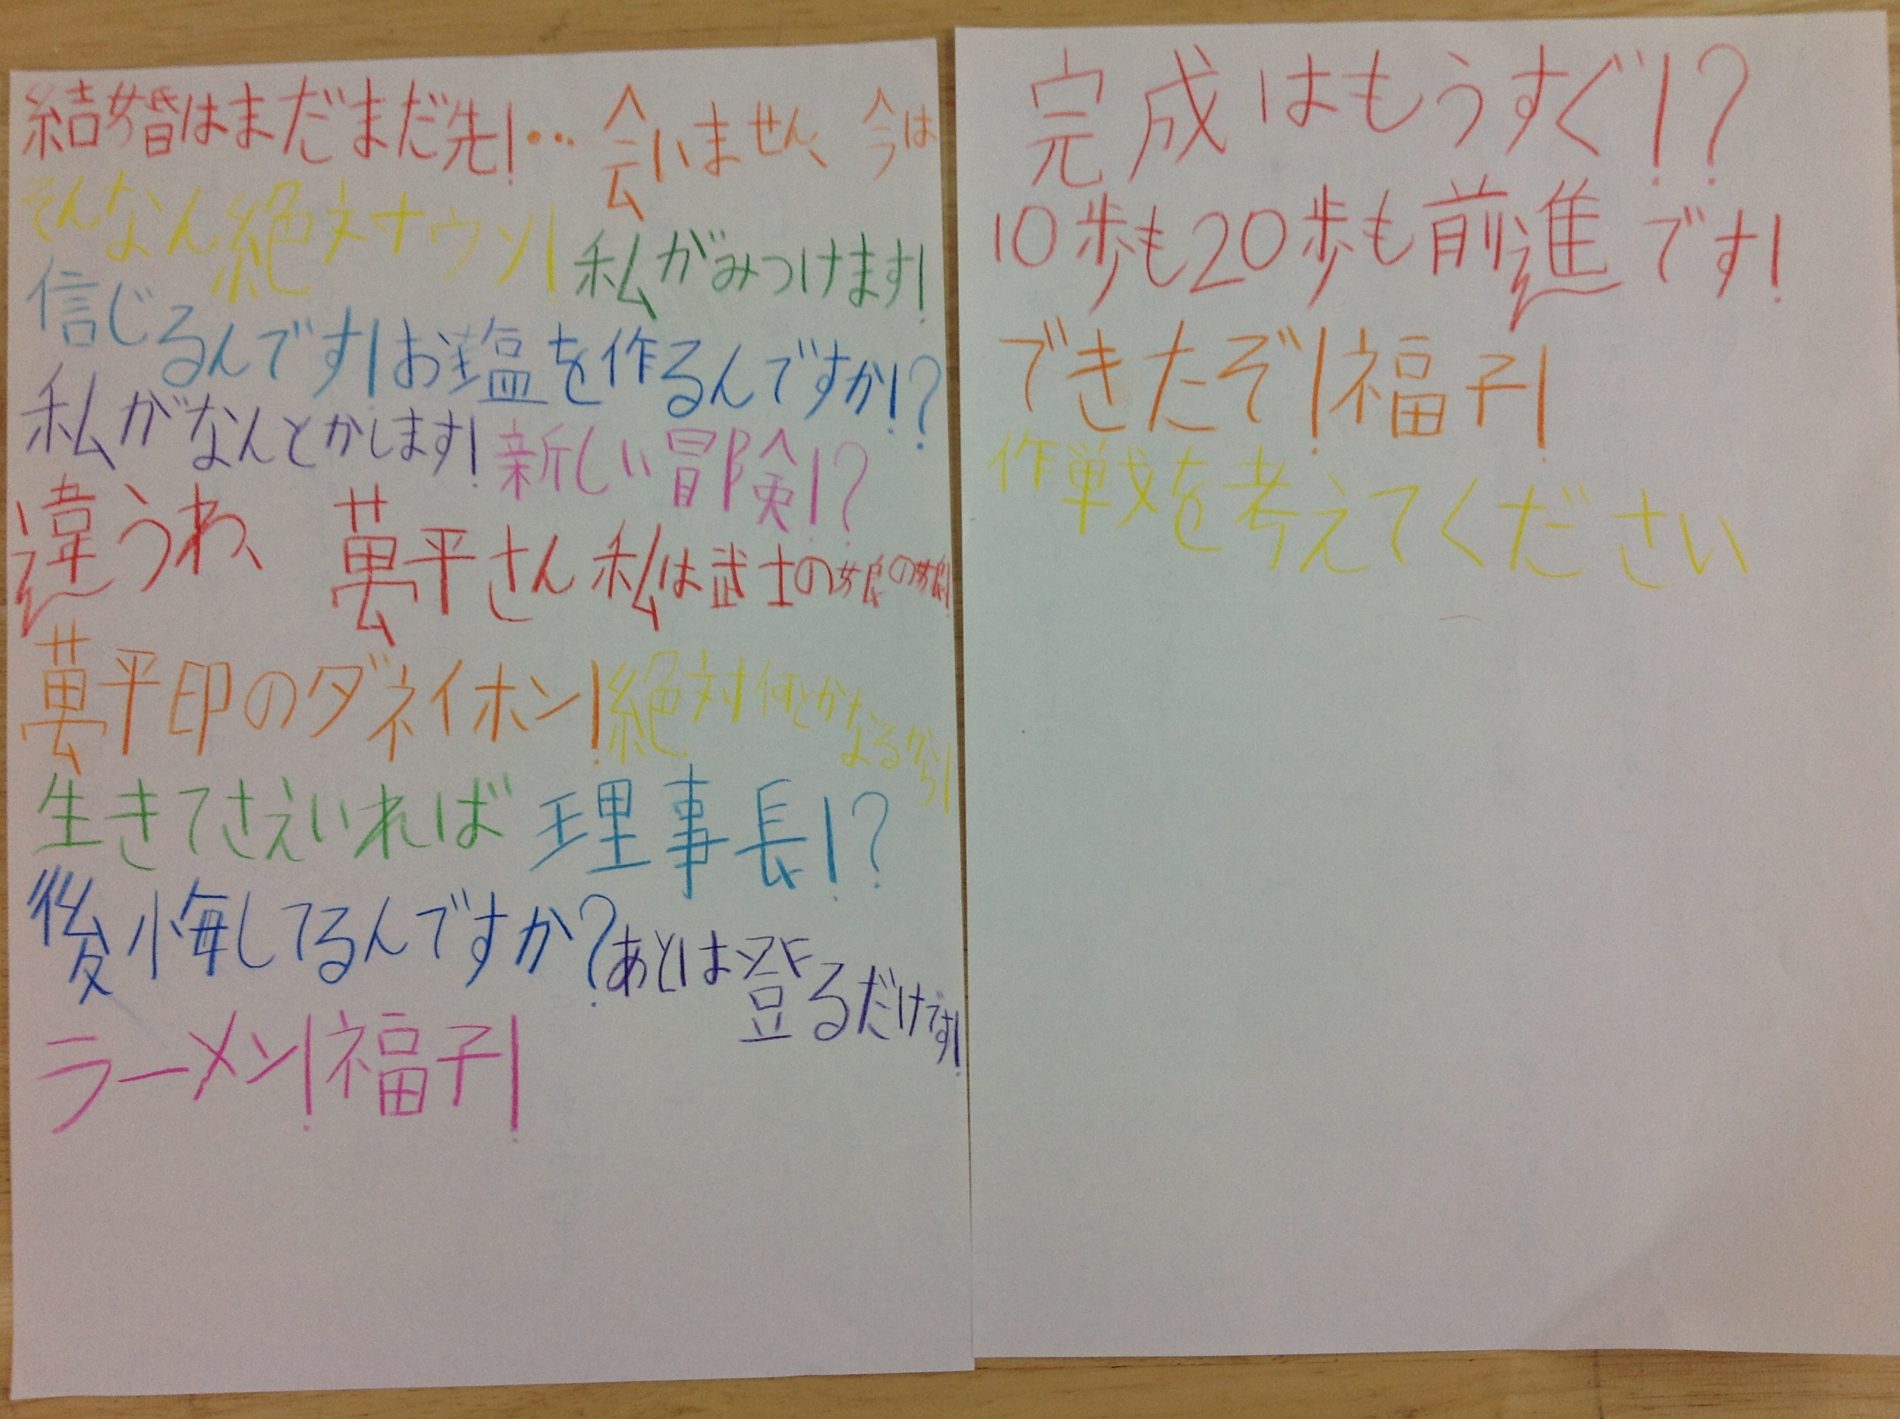 結婚はまだまだ先!… 会いません、今は
そんなん絶対ウソ! 私がみつけます!
信じるんです! お塩を作るんですか!?
私がなんとかします! 新しい冒険!?
違うわ、萬平さん 私は武士の娘の娘!
萬平印のダネイホン! 絶対何とかなるから!
生きてさえいれば 理事長!?
後悔してるんですか? あとは登るだけです!
ラーメン!福子!
完成はもうすぐ!?
10歩も20歩も前進です!
できたぞ!福子!
作戦を考えてください